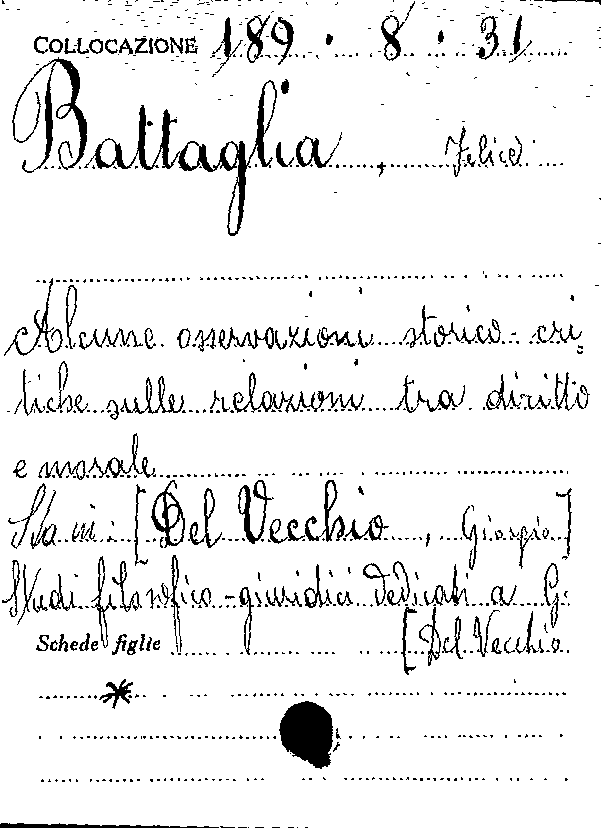 COLLOCAZIONE 189 · 8 · 31
Battaglia, Felice
Alcune osservazioni storico-cri
tiche sulle relazioni tra diritto
e morale
Sta in: [Del Vecchio, Giorgio]
Studi filosofico-giuridici dedicati a G.
Schede figlie [Del Vecchio
*